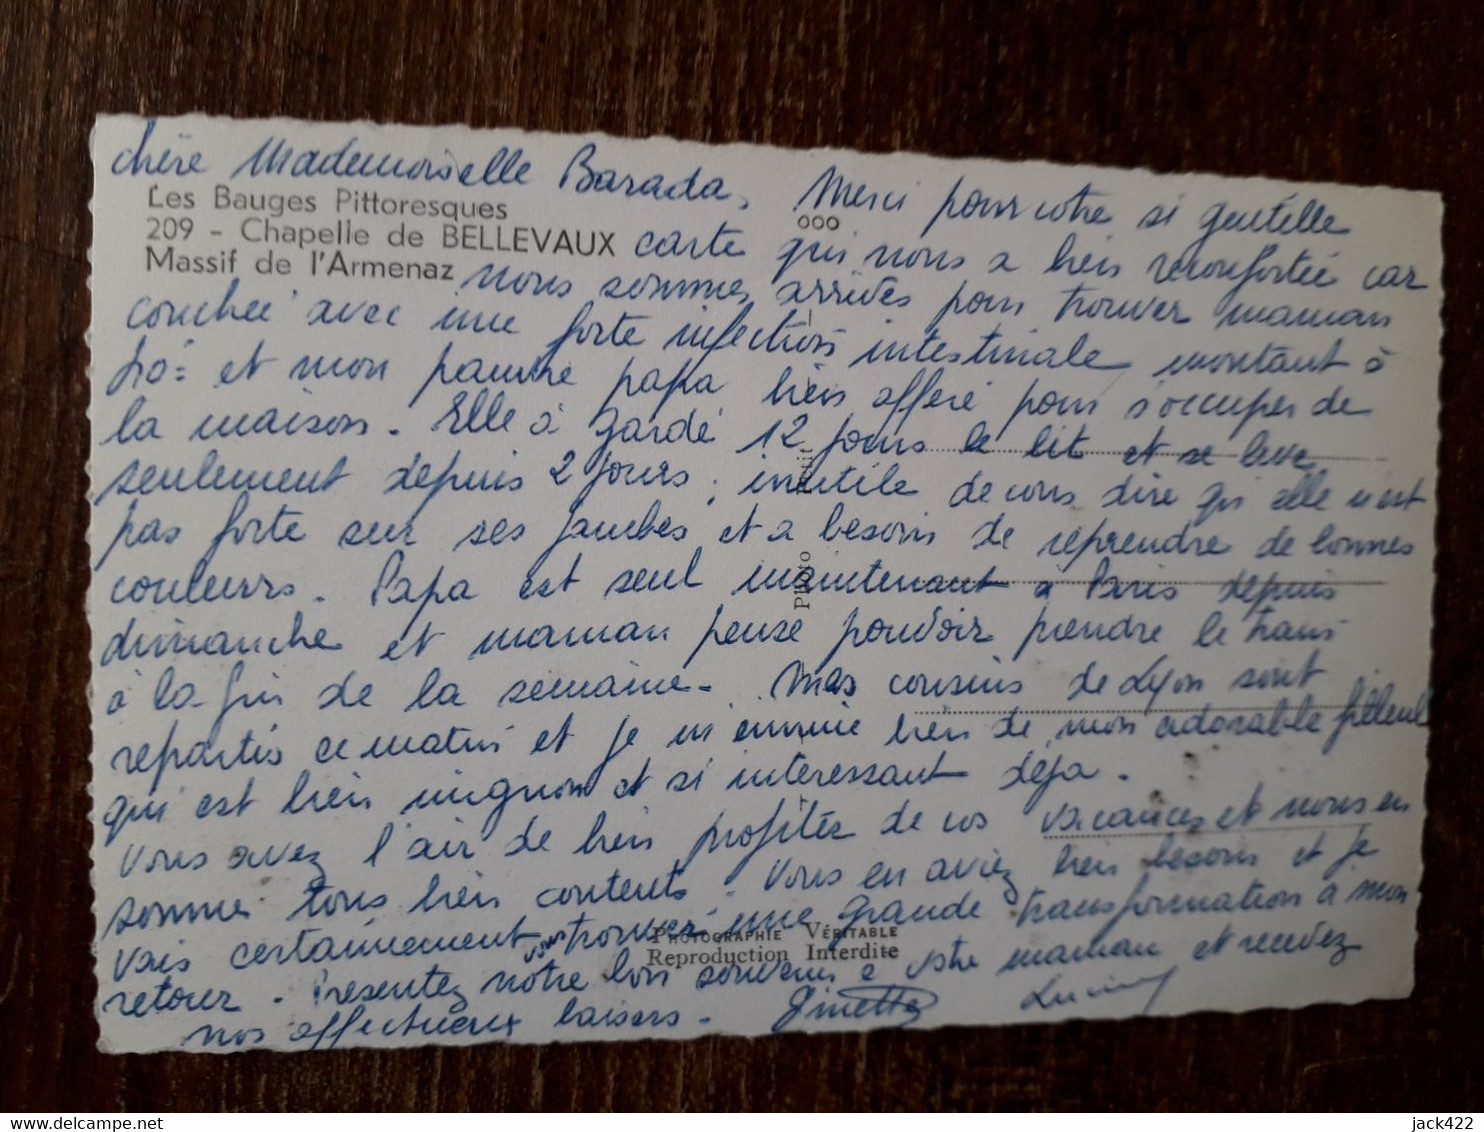 chère Mademoiselle Barada, Merci pour votre si gentille
Les Bauges Pittoresques
ooo
209 - Chapelle de BELLEVAUX
Massif de l'Armenaz
carte qui nous a bien réconfortée car
nous sommes arrivés pour trouver maman
couchée avec une forte infection intestinale montant à
40° et mon pauvre papa bien affairé pour s'occuper de
la maison. Elle à gardé 12 jours le lit et se lève
seulement depuis 2 jours, inutile de vous dire qu'elle n'est
pas forte sur ses jambes et a besoin de reprendre de bonnes
couleurs. Papa est seul maintenant à Paris depuis
dimanche et maman pense pouvoir prendre le train
à la fin de la semaine. Mes cousins de Lyon sont
repartis ce matin et je m'ennuie bien de mon adorable filleul
qui est bien mignon et si intéressant déjà.
Vous avez l'air de bien profiter de vos vacances et nous en
sommes tous bien contents. Vous en aviez bien besoin et je
vais certainement vous trouver une grande transformation à mon
retour. Présentez notre bon souvenir à votre maman et recevez
nos affectueux baisers. Ginette Lucien
Photo
PHOTOGRAPHIE VÉRITABLE
Reproduction Interdite
delcampe.net
jack422